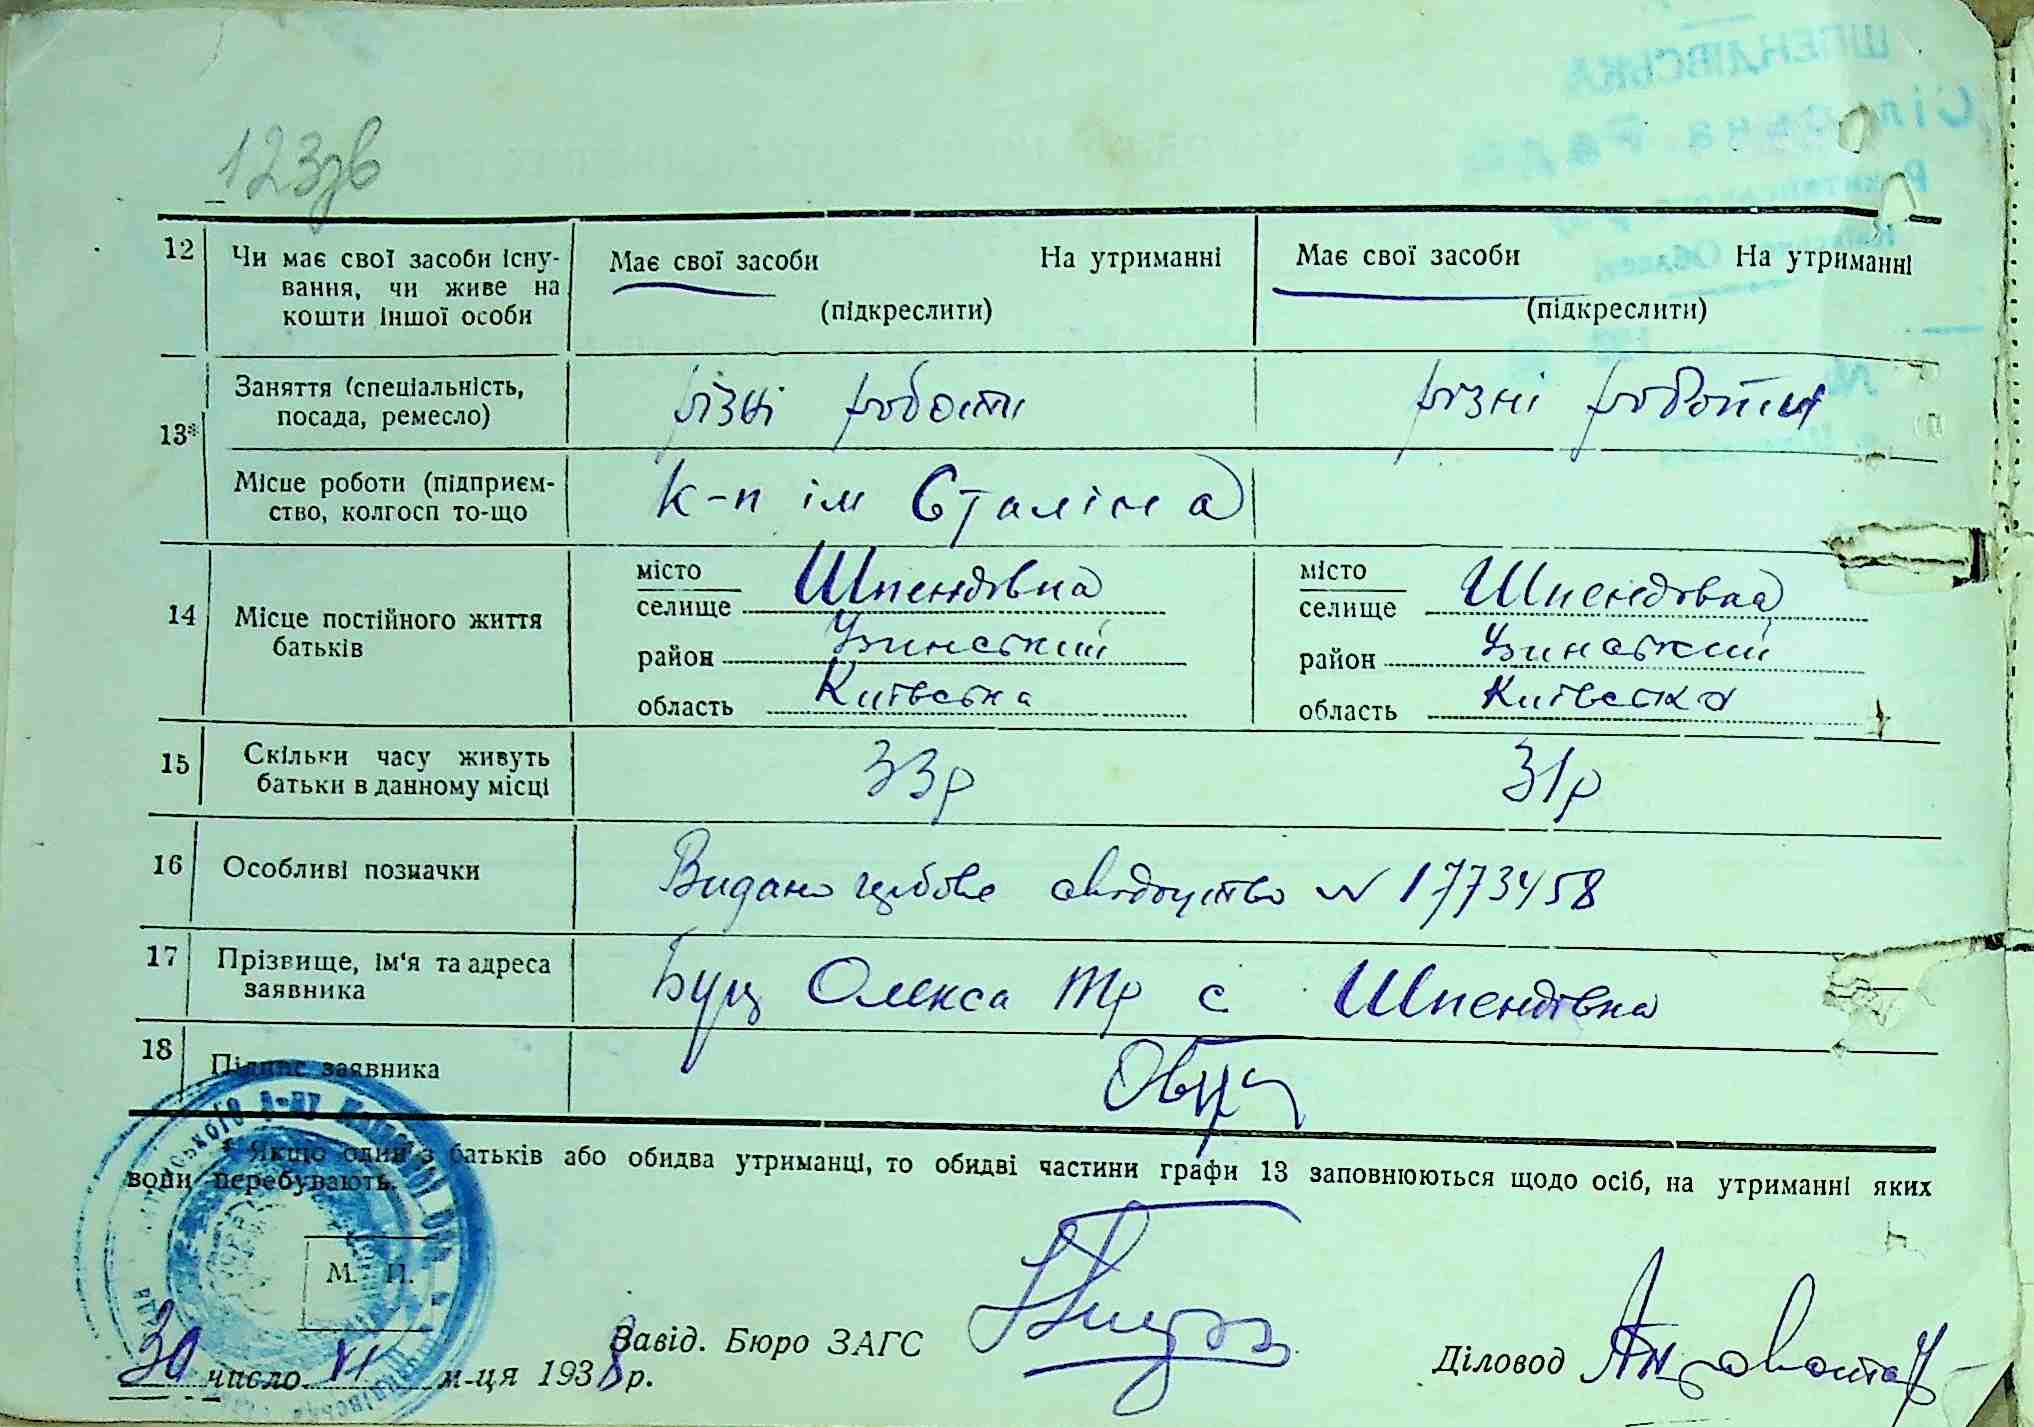 123зв
12 Чи має свої засоби існу-
вання, чи живе на
кошти іншої особи
Має свої засоби На утриманні
(підкреслити)
Має свої засоби На утриманні
(підкреслити)
13* Заняття (спеціальність,
посада, ремесло)
різні роботи
різні роботи
Місце роботи (підприєм-
ство, колгосп то-що
к-п ім Сталіна
14 Місце постійного життя
батьків
місто
селище Шпендівка
район Узинський
область Київська
місто
селище Шпендівка
район Узинський
область Київська
15 Скільки часу живуть
батьки в данному місці
33р
31р
16 Особливі позначки
Видано гербове свідоцтво N 1773458
17 Прізвище, ім'я та адреса
заявника
Буц Олекса Тр с Шпендівка
18 Підпис заявника
* Якщо один з батьків або обидва утриманці, то обидві частини графи 13 заповнюються щодо осіб, на утриманні яких
вони перебувають.
М. П.
Завід. Бюро ЗАГС
Діловод
30 число VI м-ця 1938 р.
ШПЕНДІВСЬКА
Сільська Рада